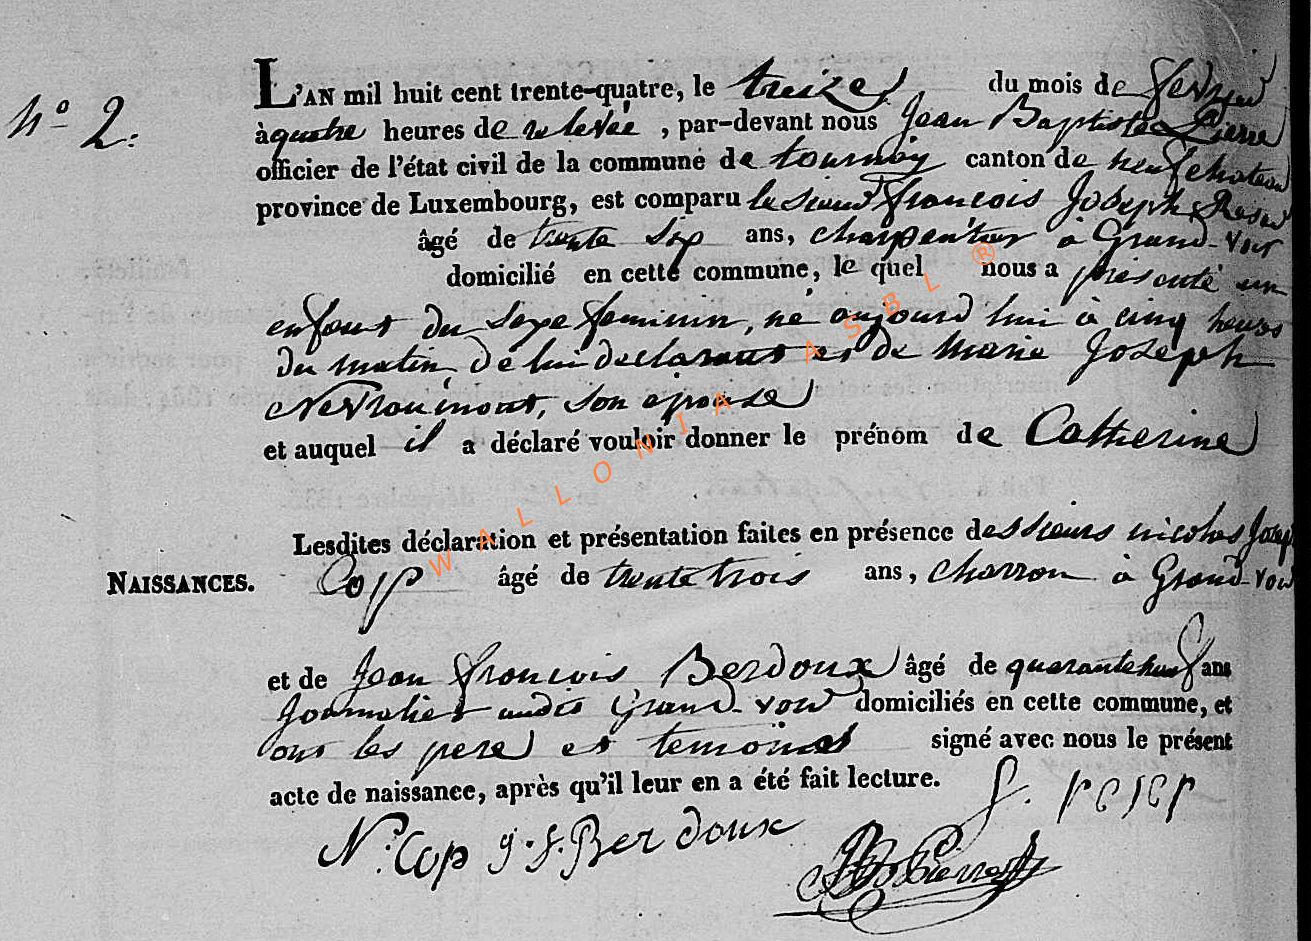 N.o 2.
L'AN mil huit cent trente-quatre, le treize du mois de fevrier
à quatre heures de relevée, par-devant nous Jean Baptiste Pierre
officier de l'état civil de la commune de tournay canton de neufchateau
province de Luxembourg, est comparu le sieur françois Joseph
âgé de trente six ans, charpentier à Grand-voir
domicilié en cette commune, le quel nous a présenté un
enfant du sexe feminin, né aujourd hui à cinq heures
du matin, de lui declarant et de Marie Joseph
Nevraumont, son epouse
et auquel il a déclaré vouloir donner le prénom de Catherine
Lesdites déclaration et présentation faites en présence des sieurs nicolas Joseph
NAISSANCES. Cop âgé de trente trois ans, charron à Grand-voir
et de Jean françois Berdoux âgé de quarante neuf ans
Journalier audit Grand-voir domiciliés en cette commune, et
ont les pere et temoins signé avec nous le présent
acte de naissance, après qu'il leur en a été fait lecture.
N: Cop J. f. Berdoux f. reser
JB Pierret
WALLONIA ASBL ®